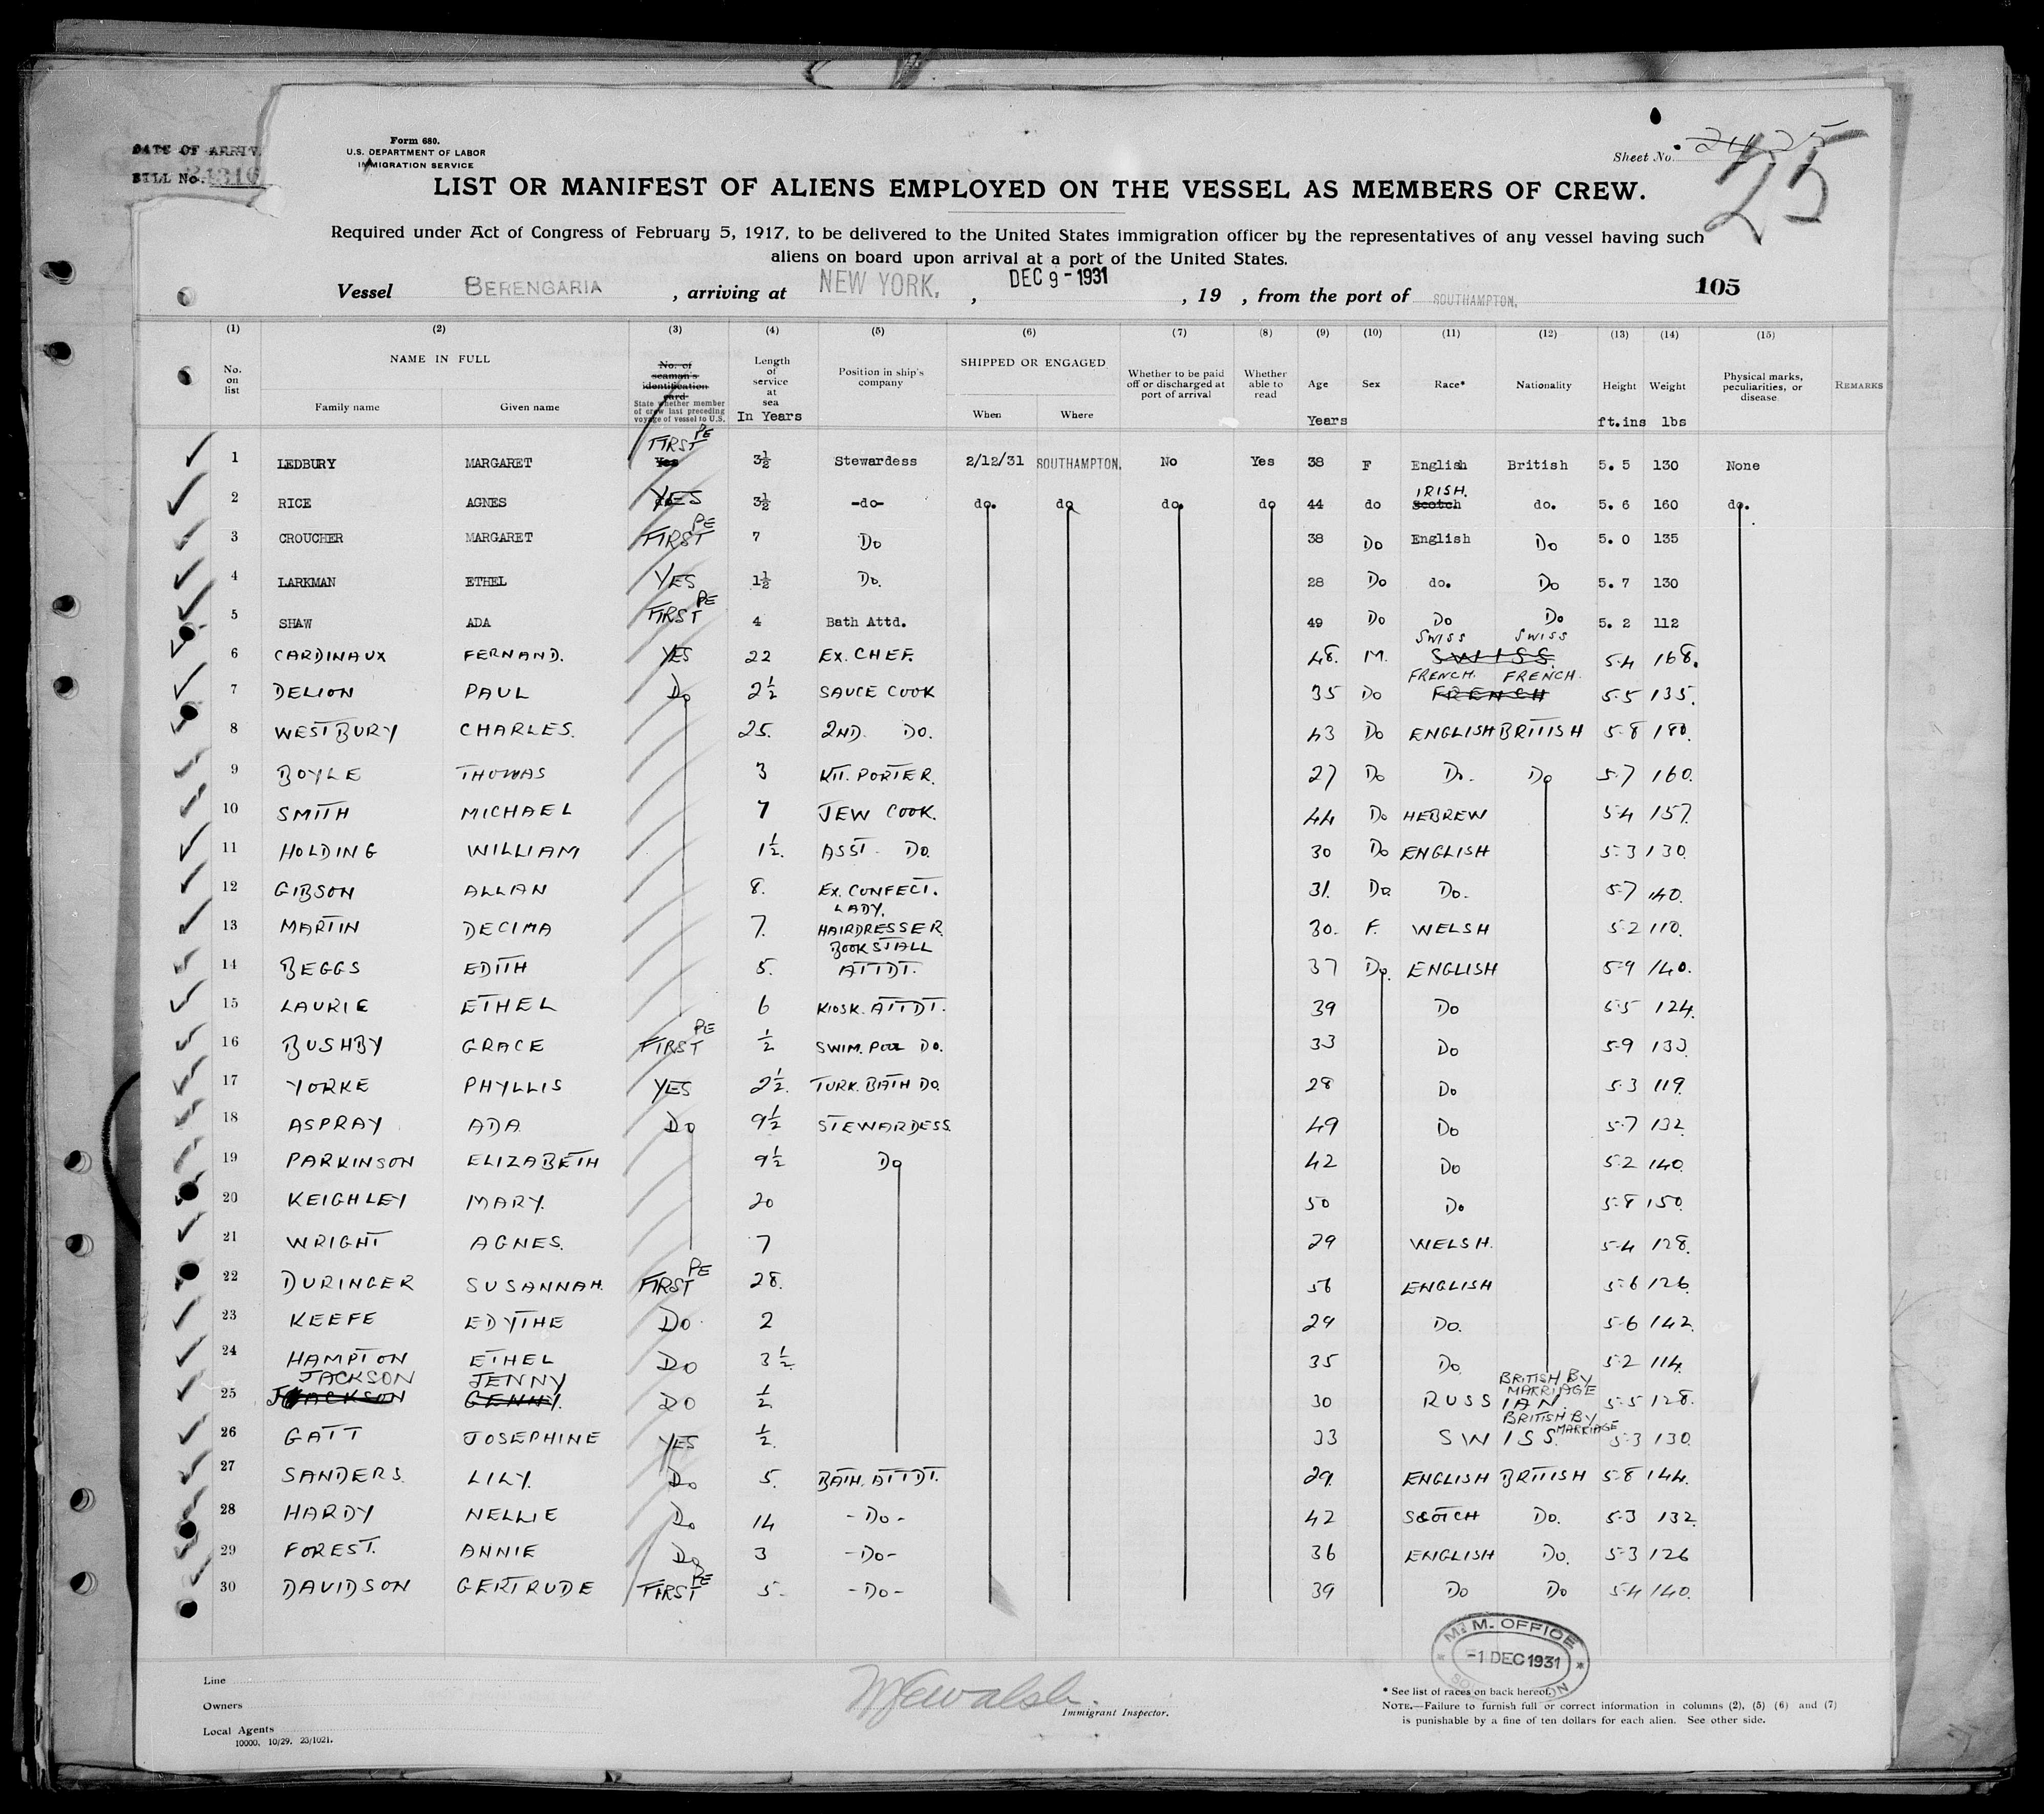 DATE OF ARRIV
BILL No.
Form 680.
U.S. DEPARTMENT OF LABOR
IMMIGRATION SERVICE
Sheet No. 24 25
25
LIST OR MANIFEST OF ALIENS EMPLOYED ON THE VESSEL AS MEMBERS OF CREW.
Required under Act of Congress of February 5, 1917, to be delivered to the United States immigration officer by the representatives of any vessel having such
aliens on board upon arrival at a port of the United States.
Vessel BERENGARIA , arriving at NEW YORK. , DEC 9 - 1931 , 19 , from the port of SOUTHAMPTON. 105
(1) (2) (3) (4) (5) (6) (7) (8) (9) (10) (11) (12) (13) (14) (15)
No. on list NAME IN FULL Family name Given name No. of seaman's identification card State whether member of crew last preceding voyage of vessel to U.S. Length of service at sea In Years Position in ship's company SHIPPED OR ENGAGED When Where Whether to be paid off or discharged at port of arrival Whether able to read Age Years Sex Race* Nationality Height ft.ins Weight lbs Physical marks, peculiarities, or disease REMARKS
1 LEDBURY MARGARET FIRST PE Yes 3½ Stewardess 2/12/31 SOUTHAMPTON. No Yes 38 F English British 5. 5 130 None
2 RICE AGNES YES 3½ -do- do. do do. do 44 do IRISH. Scotch do. 5. 6 160 do.
3 CROUCHER MARGARET FIRST PE 7 Do 38 Do English Do 5. 0 135
4 LARKMAN ETHEL YES 1½ Do. 28 Do do. Do 5. 7 130
5 SHAW ADA FIRST PE 4 Bath Attd. 49 Do Do Do 5. 2 112
6 CARDINAUX FERNAND. YES 22 EX. CHEF. 48. M. SWISS SWISS SWISS. 5.4 168.
7 DELION PAUL Do 2½ SAUCE COOK 35 Do FRENCH. FRENCH. FRENCH 5.5 135.
8 WESTBURY CHARLES. 25. 2ND. DO. 43 Do ENGLISH BRITISH 5.8 180.
9 BOYLE THOMAS 3 KIT. PORTER. 27 Do Do. Do 5.7 160.
10 SMITH MICHAEL 7 JEW COOK. 44 Do HEBREW 5.4 157.
11 HOLDING WILLIAM 1½. ASST. DO. 30 Do ENGLISH 5.3 130.
12 GIBSON ALLAN 8. EX. CONFECT. 31. Do Do. 5.7 140.
13 MARTIN DECIMA 7. LADY. HAIRDRESSER. 30. F. WELSH 5.2 110.
14 BEGGS EDITH 5. BOOK STALL ATTDT. 37 Do. ENGLISH 5.9 140.
15 LAURIE ETHEL 6 KIOSK. ATTDT. 39 Do 5.5 124.
16 BUSHBY GRACE FIRST PE ½ SWIM. POOL DO. 33 Do 5.9 133.
17 YORKE PHYLLIS YES 2½. TURK. BATH DO. 28 Do 5.3 119.
18 ASPRAY ADA. Do 9½ STEWARDESS. 49 Do 5.7 132.
19 PARKINSON ELIZABETH 9½ Do 42 Do 5.2 140.
20 KEIGHLEY MARY. 20 50 Do 5.8 150.
21 WRIGHT AGNES. 7 29 WELSH. 5.4 128.
22 DURINGER SUSANNAH. FIRST PE 28. 56 ENGLISH 5.6 126.
23 KEEFE EDYTHE Do 2 29 Do. 5.6 142.
24 HAMPTON ETHEL Do 3½. 35 Do. 5.2 114.
JACKSON JENNY BRITISH BY MARRIAGE
25 JACKSON GENNY. Do ½ 30 RUSSIAN. 5.5 128.
BRITISH BY MARRIAGE
26 GATT JOSEPHINE YES ½. 33 SWISS. 5.3 130.
27 SANDERS. LILY. Do 5. BATH. ATTDT. 29. ENGLISH BRITISH 5.8 144.
28 HARDY NELLIE Do 14 -Do- 42 SCOTCH Do. 5.3 132.
29 FOREST. ANNIE Do 3 -Do- 36 ENGLISH Do. 5.3 126
30 DAVIDSON GERTRUDE FIRST PE 5. -Do- 39 Do Do 5.4 140.
M. M. OFFICE
-1 DEC 1931
Line
Owners
Local Agents
10000. 10/29. 23/1021.
Immigrant Inspector.
* See list of races on back hereof.
NOTE.—Failure to furnish full or correct information in columns (2), (5) (6) and (7)
is punishable by a fine of ten dollars for each alien. See other side.